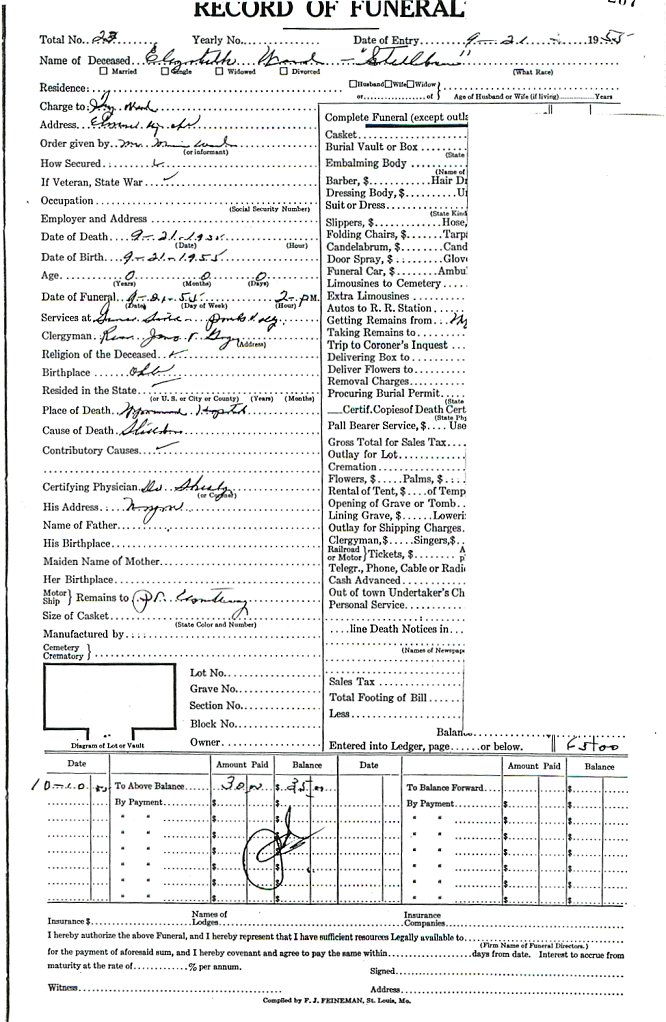 RECORD OF FUNERAL
Total No. 23 Yearly No. Date of Entry 9-21- 1955
Name of Deceased Elizabeth "Stillborn"
Married Single Widowed Divorced (What Race)
Residence: Husband Wife Widow
or of Age of Husband or Wife (if living) Years
Charge to
Address
Order given by Mr.
(or informant)
How Secured
If Veteran, State War
Occupation
(Social Security Number)
Employer and Address
Date of Death 9-21-1955
(Date) (Hour)
Date of Birth 9-21-1955
Age 0 0 0
(Years) (Months) (Days)
Date of Funeral 9-21-55 2- P.M.
(Date) (Day of Week) (Hour)
Services at
Clergyman
(Address)
Religion of the Deceased
Birthplace
Resided in the State
(or U. S. or City or County) (Years) (Months)
Place of Death Hospital
Cause of Death Stillborn
Contributory Causes
Certifying Physician Dr.
(or Coroner)
His Address
Name of Father
His Birthplace
Maiden Name of Mother
Her Birthplace
Motor
Ship } Remains to Cemetery
Size of Casket
(State Color and Number)
Manufactured by
Cemetery
Crematory }
Lot No.
Grave No.
Section No.
Block No.
Owner
Diagram of Lot or Vault
Complete Funeral (except outla
Casket
Burial Vault or Box
(State
Embalming Body
(Name of
Barber, $ Hair Dr
Dressing Body, $ U
Suit or Dress
(State Kind
Slippers, $ Hose,
Folding Chairs, $ Tarpa
Candelabrum, $ Cand
Door Spray, $ Glov
Funeral Car, $ Ambu
Limousines to Cemetery
Extra Limousines
Autos to R. R. Station
Getting Remains from
Taking Remains to
Trip to Coroner's Inquest
Delivering Box to
Deliver Flowers to
Removal Charges
Procuring Burial Permit
(State
Certif. Copies of Death Cert
(State Ph
Pall Bearer Service, $ Use
Gross Total for Sales Tax
Outlay for Lot
Cremation
Flowers, $ Palms, $
Rental of Tent, $ of Temp
Opening of Grave or Tomb
Lining Grave, $ Loweri
Outlay for Shipping Charges
Clergyman, $ Singers, $
Railroad
or Motor } Tickets, $
Telegr., Phone, Cable or Radi
Cash Advanced
Out of town Undertaker's Ch
Personal Service
line Death Notices in
(Names of Newspap
Sales Tax
Total Footing of Bill
Less
Balanc
Entered into Ledger, page or below. 65 00
Date Amount Paid Balance Date Amount Paid Balance
10-10 55 To Above Balance 30 00 $ 35 00 To Balance Forward $
By Payment $ $ By Payment $ $
" " $ $ " " $ $
" " $ $ " " $ $
" " $ $ " " $ $
" " $ $ " " $ $
" " $ $ " " $ $
Insurance $ Names of Lodges Insurance Companies
I hereby authorize the above Funeral, and I hereby represent that I have sufficient resources Legally available to
(Firm Name of Funeral Directors.)
for the payment of aforesaid sum, and I hereby covenant and agree to pay the same within days from date. Interest to accrue from
maturity at the rate of % per annum. Signed
Witness Address
Compiled by F. J. FEINEMAN, St. Louis, Mo.